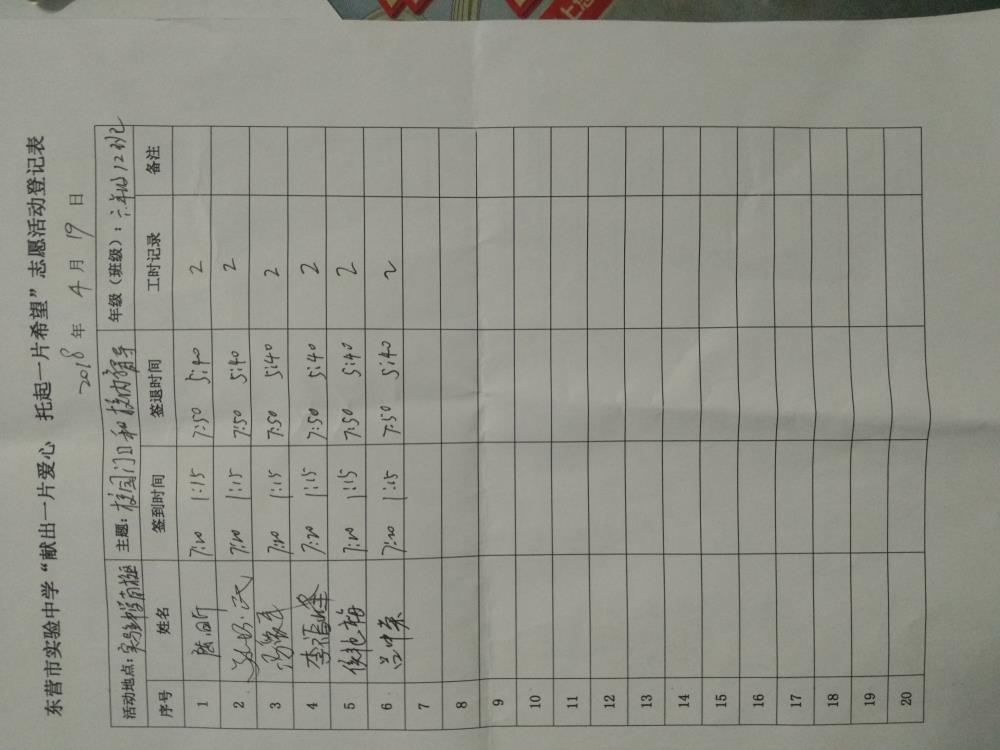 东营市实验中学“献出一片爱心 托起一片希望”志愿活动登记表
2018 年 4 月 19 日
活动地点: 主题: 校园门口和校内督导 年级（班级）: 六年级12班
序号 姓名 签到时间 签退时间 工时记录 备注
1 7:20 1:15 7:50 5:40 2
2 7:20 1:15 7:50 5:40 2
3 7:20 1:15 7:50 5:40 2
4 7:20 1:15 7:50 5:40 2
5 7:20 1:15 7:50 5:40 2
6 吕中荣 7:20 1:15 7:50 5:40 2
7
8
9
10
11
12
13
14
15
16
17
18
19
20